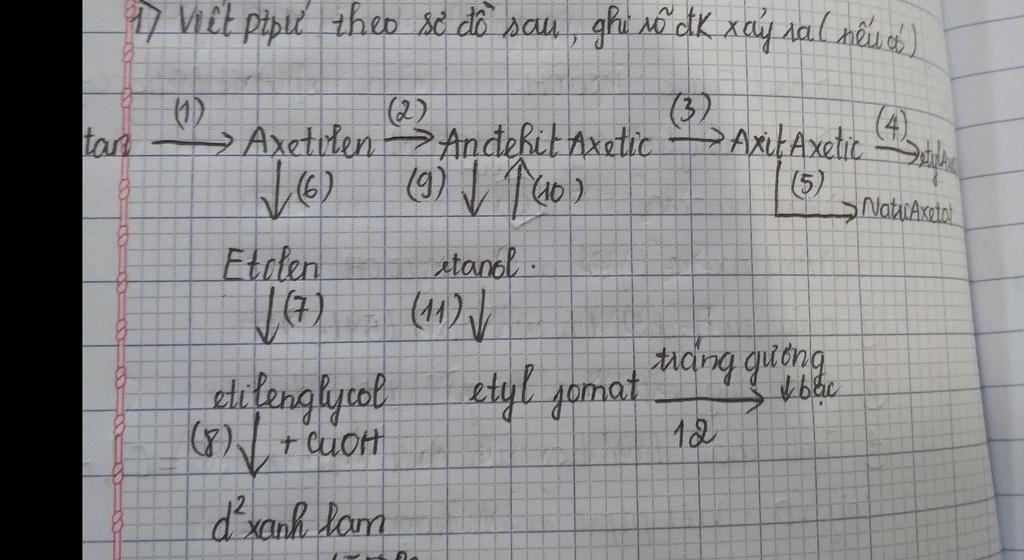 1) Viết ptpư theo sơ đồ sau, ghi rõ đk xảy ra (nếu có)
tan (1) Axetilen (2) Anđehit Axetic (3) Axit Axetic (4)
(6) (9) (10) (5) Natri Axetat
Etilen etanol.
(7) (11)
etilenglycol etyl fomat tráng gương ↓ bạc
(8) + CuOH 12
d² xanh lam